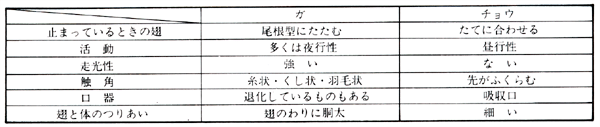 ガ チョウ
止まっているときの翅 尾根型にたたむ たてに合わせる
活動 多くは夜行性 昼行性
走光性 強い ない
触角 糸状・くし状・羽毛状 先がふくらむ
口器 退化しているものもある 吸収口
翅と体のつりあい 翅のわりに胴太 細い